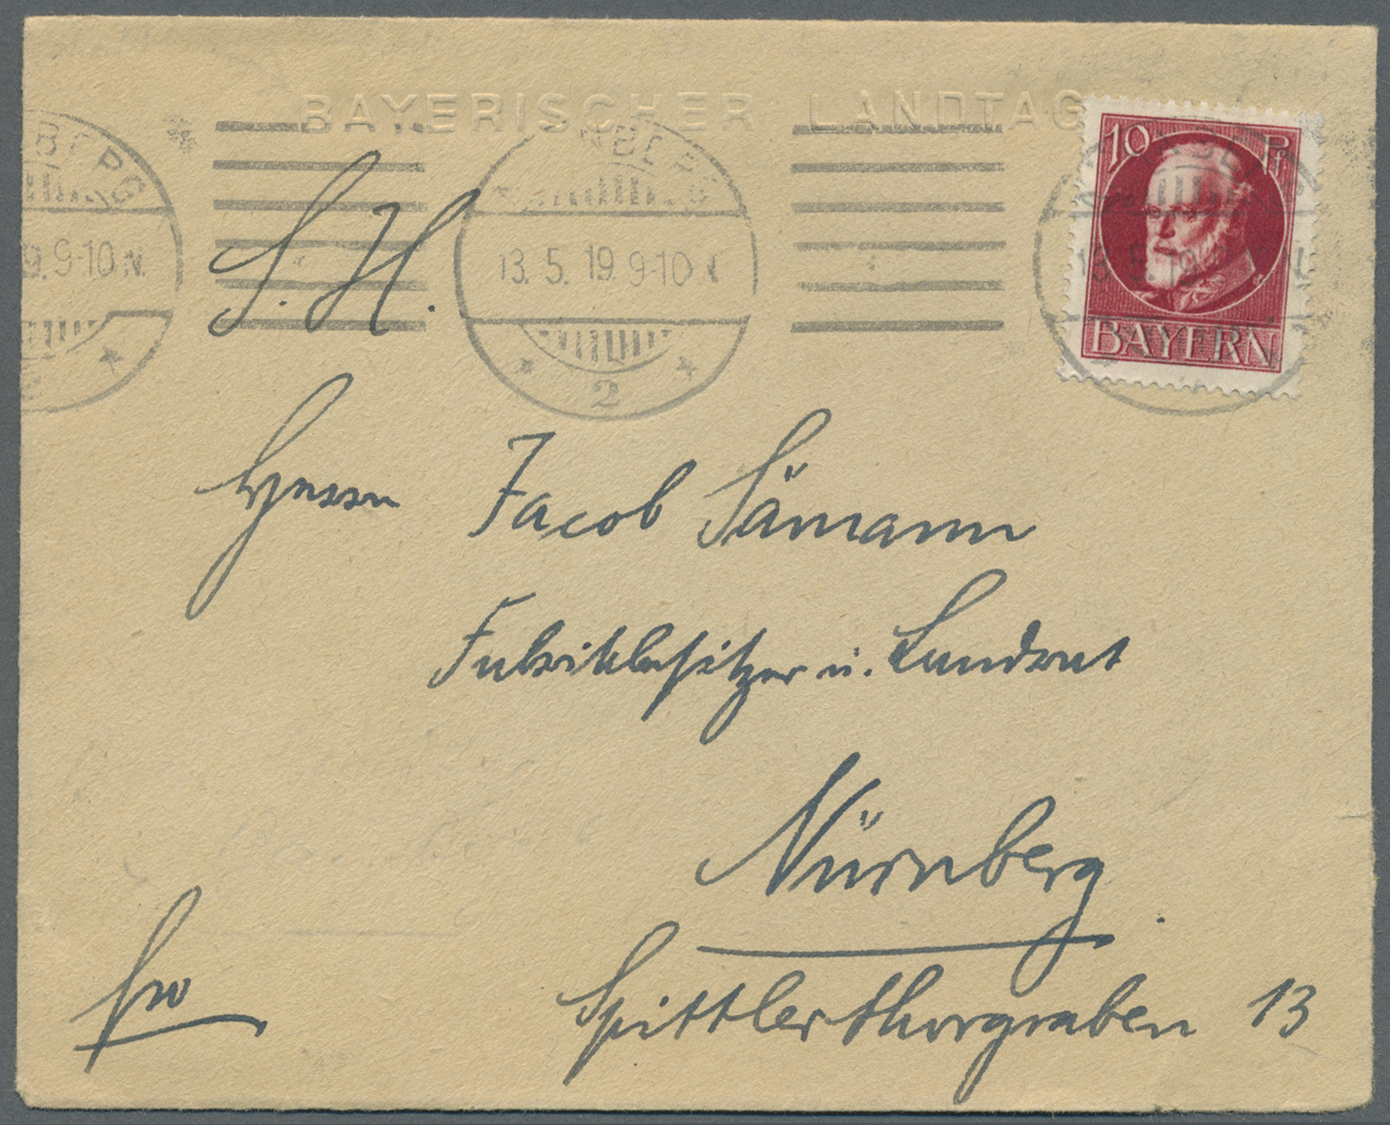 BAYERISCHER LANDTAG
BERG
9. 9-10 N.
NBERG
13. 5. 19 9-10 N
2
10 Pf
BAYERN
S. H.
Herrn Jacob Sämann
Fabrikbesitzer u. Landrat
Nürnberg
Spittlerthorgraben 13